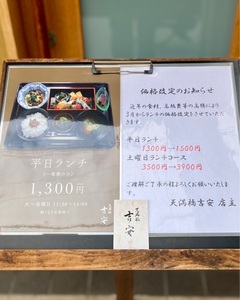 平日ランチ
1,300円
価格改定のお知らせ
近年の食材、高騰等の高騰により
3月からランチの価格改定をさせていただ
きます。
平日ランチ
1300円→1500円
土曜日ランチコース
3500円→3900円
ご理解ご了承の程よろしくお願いいたしま
す。
天満橋吉安 店主
吉安